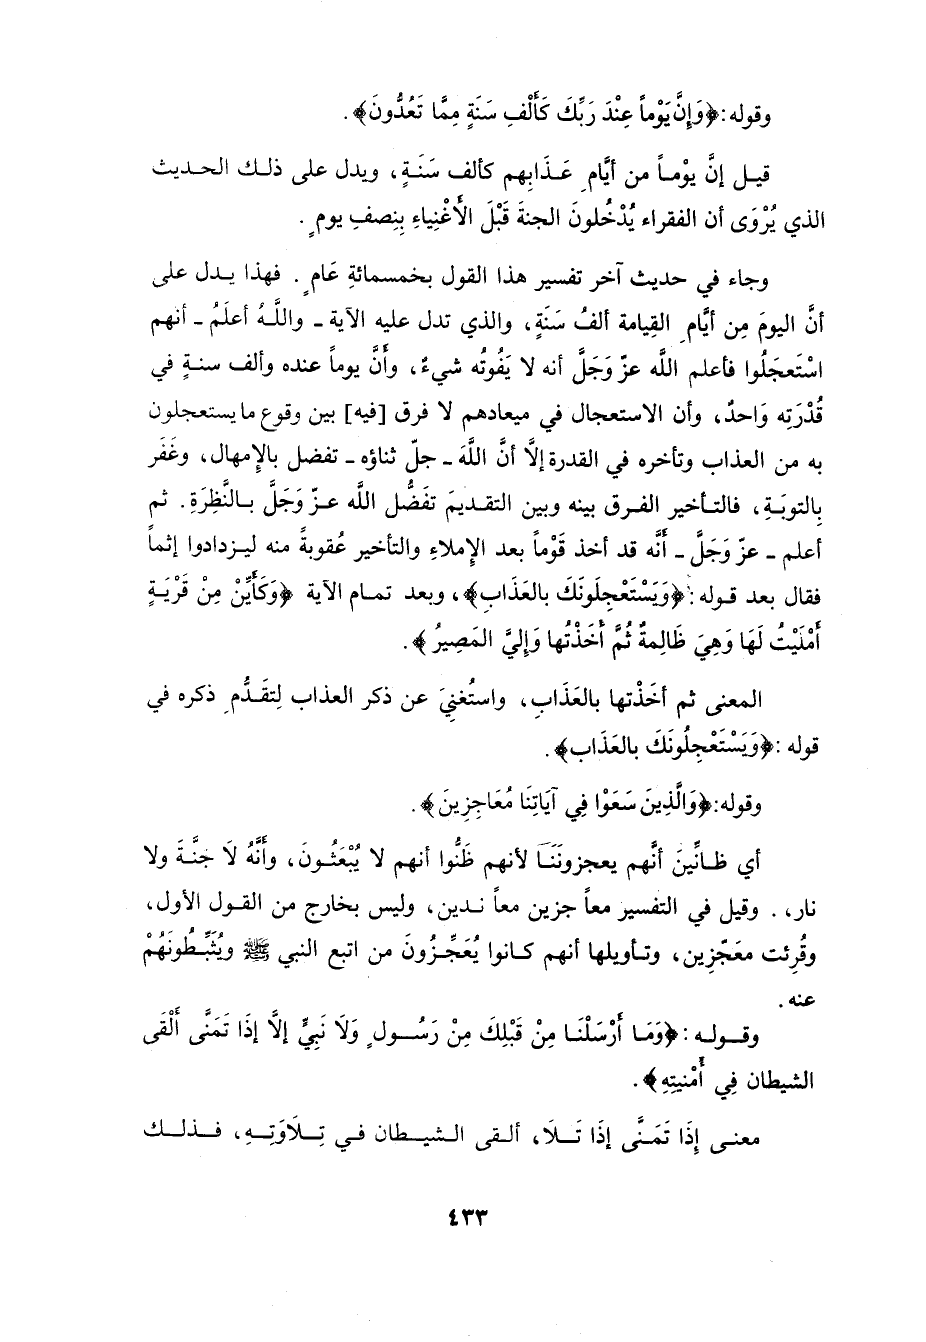 وقوله: ﴿وَإِنَّ يَوْماً عِنْدَ رَبِّكَ كَأَلْفِ سَنَةٍ مِمَّا تَعُدُّونَ﴾.
قيل إنَّ يوْماً من أيَّامِ عَذَابِهم كألف سَنَةٍ، ويدل على ذلك الحديث
الذي يُرْوَى أن الفقراء يُدْخُلونَ الجنةَ قَبْلَ الأَغْنِياءِ بِنِصفِ يومٍ.
وجاء في حديث آخر تفسير هذا القول بخمسمائةِ عَامٍ. فهذا يدل على
أنَّ اليومَ مِن أيَّامِ القِيامة ألفُ سَنَةٍ، والذي تدل عليه الآية - واللَّهُ أعلَمُ - أنهم
اسْتَعجَلُوا فأعلم اللَّه عزّ وَجَلَّ أنه لا يَفُوتُه شيءٌ، وأَنَّ يوماً عنده وألف سنةٍ في
قُدْرَتِه وَاحدٌ، وأن الاستعجال في ميعادهم لا فرق [فيه] بين وقوع ما يستعجلون
به من العذاب وتأخره في القدرة إلَّا أنَّ اللَّهَ - جلّ ثناؤه - تفضل بالإمهال، وغَفَر
بِالتوبَةِ، فالتأخير الفرق بينه وبين التقديمَ تفَضُّل اللَّه عزّ وَجَلَّ بالنَّظِرَةِ. ثم
أعلم - عزّ وَجَلَّ - أنَّه قد أخذ قَوْماً بعد الإملاءِ والتأخير عُقوبةً منه ليزدادوا إثماً
فقال بعد قوله: ﴿وَيَسْتَعْجِلُونَكَ بالعَذَابِ﴾، وبعد تمام الآية ﴿وَكَأَيِّنْ مِنْ قَرْيَةٍ
أَمْلَيْتُ لَهَا وَهِيَ ظَالِمةٌ ثُمَّ أَخَذْتُها وَإِليَّ المَصِيرُ﴾.
المعنى ثم أخَذْتها بالعَذَابِ، واستُغنِيَ عن ذكر العذاب لِتقَدُّمِ ذكره في
قوله: ﴿وَيَسْتَعْجِلُونَكَ بالعَذَاب﴾.
وقوله: ﴿وَالَّذِينَ سَعَوْا فِي آيَاتِنَا مُعَاجِزِينَ﴾.
أي ظانِّينَ أنَّهم يعجزونَنَا لأنهم ظَنُّوا أنهم لا يُبْعَثُونَ، وأَنَّهُ لَا جَنَّةَ ولا
نار،. وقيل في التفسير معاً جزين معاً ندين، وليس بخارج من القول الأول،
وقُرِئت معَجّزين، وتأويلها أنهم كانوا يُعَجِّزُونَ من اتبع النبي ﷺ ويُثَبِّطُونَهُمْ
عنه.
وقوله: ﴿وَمَا أَرْسَلْنَا مِنْ قَبْلِكَ مِنْ رَسُولٍ وَلَا نَبِيٍّ إلَّا إذَا تَمَنَّى أَلْقَى
الشيطان فِي أُمْنيتِهِ﴾.
معنى إِذَا تَمَنَّى إذَا تَلَا، ألقى الشيطان في تِلَاوَتِهِ، فذلك
٤٣٣